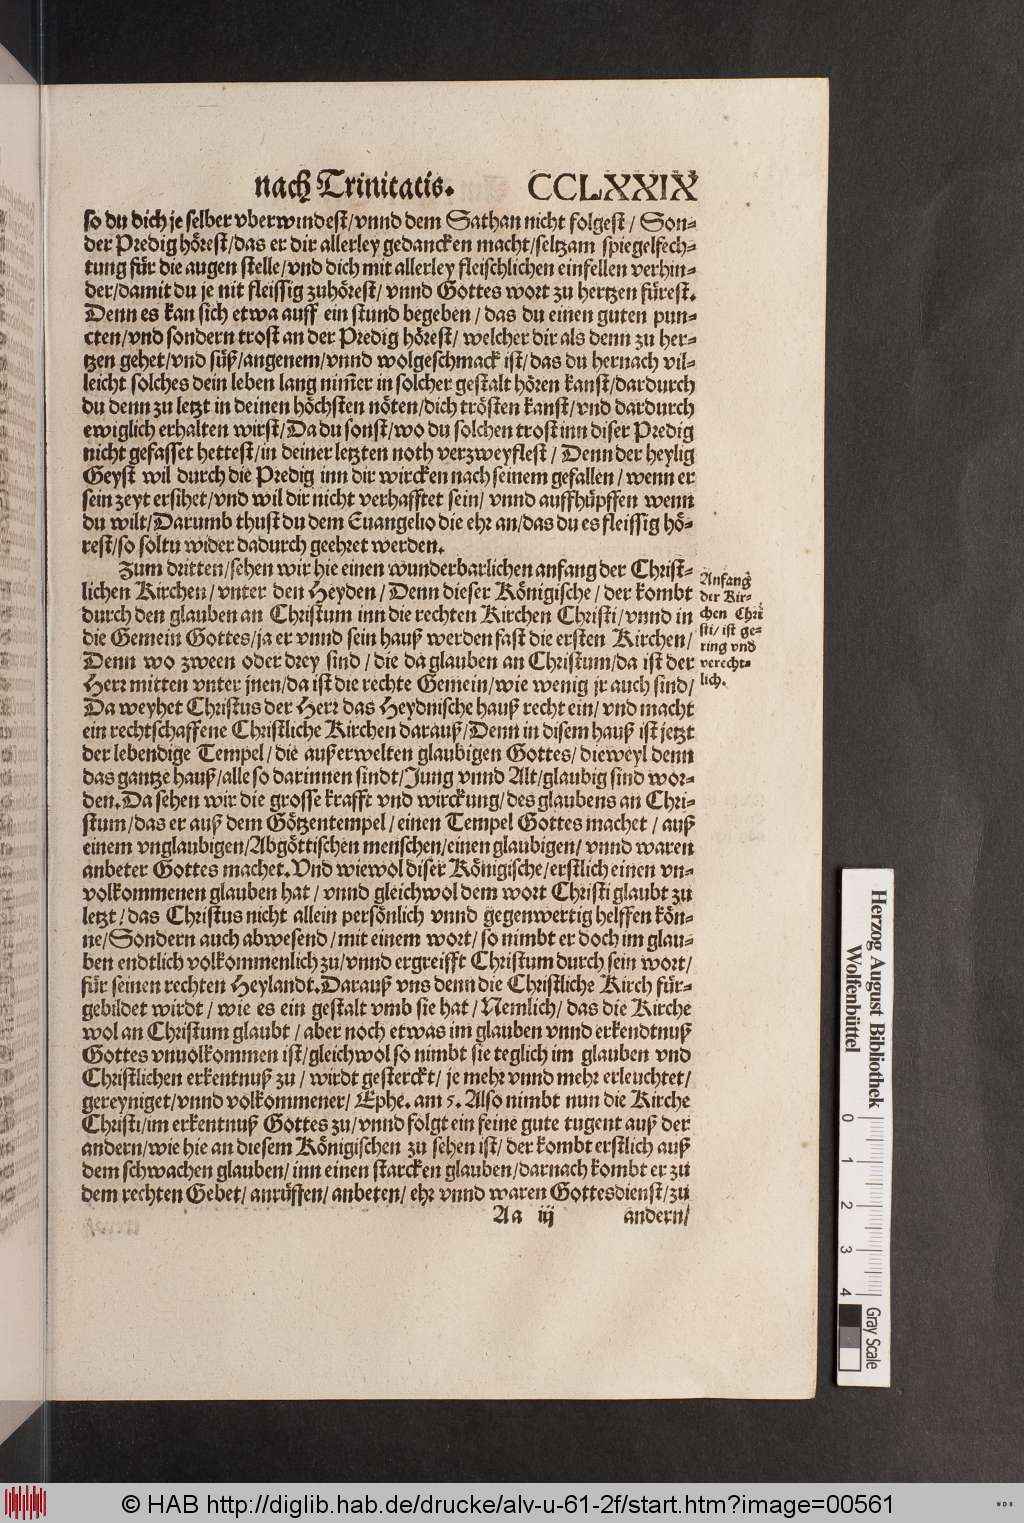 nach Trinitatis. CCLXXIX
so du dich je selber vberwindest/vnnd dem Sathan nicht folgest/ Son-
der Predig hörest/das er dir allerley gedancken macht/seltzam spiegelfech-
tung für die augen stelle/vnd dich mit allerley fleischlichen einfellen verhin-
der/damit du je nit fleissig zuhörest/ vnnd Gottes wort zu hertzen fürest.
Denn es kan sich etwa auff ein stund begeben/ das du einen guten pun-
cten/vnd sondern trost an der Predig hörest/ welcher dir als denn zu her-
tzen gehet/vnd süß/angenem/vnnd wolgeschmack ist/das du hernach vil-
leicht solches dein leben lang nim̃er in solcher gestalt hören kanst/dardurch
du denn zu letzt in deinen höchsten nöten/dich trösten kanst/vnd dardurch
ewiglich erhalten wirst/Da du sonst/wo du solchen trost inn diser Predig
nicht gefasset hettest/in deiner letzten noth verzweyflest/ Denn der heylig
Geyst wil durch die Predig inn dir wircken nach seinem gefallen/ wenn er
sein zeyt ersihet/vnd wil dir nicht verhafftet sein/ vnnd auffhüpffen wenn
du wilt/Darumb thust du dem Euangelio die ehr an/das du es fleissig hö-
rest/so soltu wider dadurch geehret werden.
Zum dritten/sehen wir hie einen wunderbarlichen anfang der Christ-
lichen Kirchen/vnter den Heyden/ Denn dieser Königische/ der kombt
durch den glauben an Christum inn die rechten Kirchen Christi/vnnd in
die Gemein Gottes/ja er vnnd sein hauß werden fast die ersten Kirchen/
Denn wo zween oder drey sind/ die da glauben an Christum/da ist der
Herr mitten vnter jnen/da ist die rechte Gemein/wie wenig jr auch sind/
Da weyhet Christus der Herr das Heydnische hauß recht ein/ vnd macht
ein rechtschaffene Christliche Kirchen darauß/Denn in disem hauß ist jetzt
der lebendige Tempel/ die außerwelten glaubigen Gottes/ dieweyl denn
das gantze hauß/alle so darinnen sindt/Jung vnnd Alt/glaubig sind wor-
den. Da sehen wir die grosse krafft vnd wirckung/des glaubens an Chri-
stum/das er auß dem Götzentempel/einen Tempel Gottes machet/ auß
einem vnglaubigen/Abgöttischen menschen/einen glaubigen/ vnnd waren
anbeter Gottes machet. Vnd wiewol diser Königische/erstlich einen vn-
volkommenen glauben hat/ vnnd gleichwol dem wort Christi glaubt zu
letzt/das Christus nicht allein persönlich vnnd gegenwertig helffen kön-
ne/Sondern auch abwesend/mit einem wort/ so nimbt er doch im glau-
ben endtlich volkommenlich zu/vnnd ergreifft Christum durch sein wort/
für seinen rechten Heylandt. Darauß vns denn die Christliche Kirch für-
gebildet wirdt/ wie es ein gestalt vmb sie hat/Nemlich/das die Kirche
wol an Christum glaubt/ aber noch etwas im glauben vnnd erkendtnuß
Gottes vnuolkommen ist/gleichwol so nimbt sie teglich im glauben vnd
Christlichen erkentnuß zu/ wirdt gesterckt/ je mehr vnnd mehr erleuchtet/
gereyniget/vnnd volkommener/ Ephe. am 5. Also nimbt nun die Kirche
Christi/im erkentnuß Gottes zu/vnnd folgt ein feine gute tugent auß der
andern/wie hie an diesem Königischen zu sehen ist/ der kombt erstlich auß
dem schwachen glauben/ inn einen starcken glauben/darnach kombt er zu
dem rechten Gebet/ anrüffen/ anbeten/ ehr vnnd waren Gottesdienst/zu
Aa iij andern/
Anfang
der Kir-
chen Chri
sti/ ist ge-
ring vnd
verecht-
lich.
Herzog August Bibliothek
Wolfenbüttel
0 1 2 3 4
Gray Scale
© HAB http://diglib.hab.de/drucke/alv-u-61-2f/start.htm?image=00561
WDB